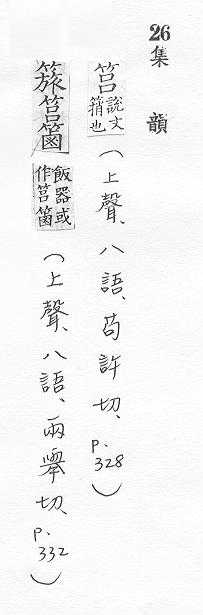 26 集 韻
筥 說文䈰也 (上聲、八語、苟許切、p.328)
筥 飯器或作筥 (上聲、八語、兩舉切、p.332)